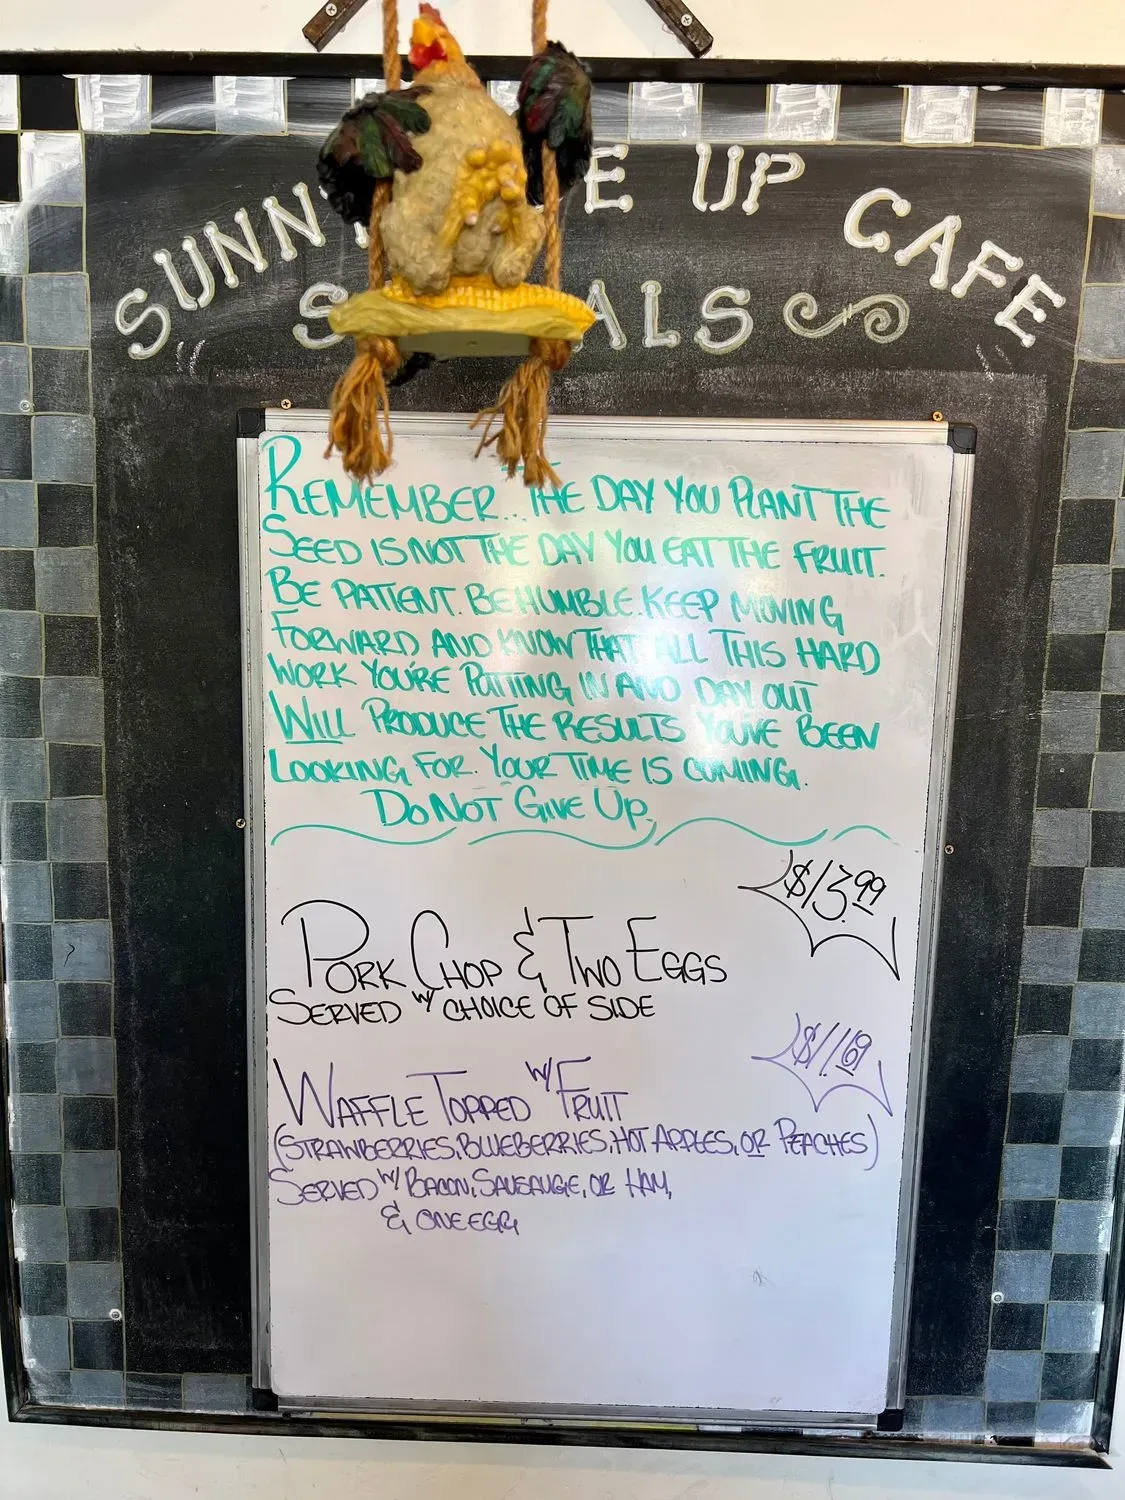 SUNN E UP CAFE
S ALS
REMEMBER... THE DAY YOU PLANT THE
SEED IS NOT THE DAY YOU EAT THE FRUIT.
BE PATIENT. BE HUMBLE. KEEP MOVING
FORWARD AND KNOW THAT ALL THIS HARD
WORK YOU'RE PUTTING IN AND DAY OUT
WILL PRODUCE THE RESULTS YOU'VE BEEN
LOOKING FOR. YOUR TIME IS COMING.
DO NOT GIVE UP.
$13.99
PORK CHOP & TWO EGGS
SERVED W/ CHOICE OF SIDE
$11.69
WAFFLE TOPPED W/ FRUIT
(STRAWBERRIES, BLUEBERRIES, HOT APPLES, OR PEACHES)
SERVED W/ BACON, SAUSAUGE, OR HAM,
& ONE EGG